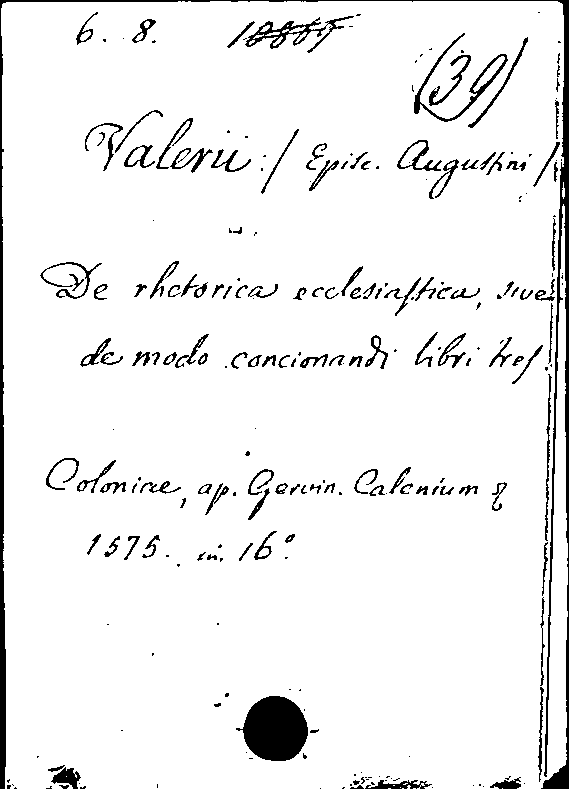 6. 8. 18867
(39)
Valerii :/ Episc. Augustini /
De rhetorica ecclesiastica, sive
de modo concionandi libri tres.
Coloniae, ap. Gervin. Calenium &
1575. in 16°